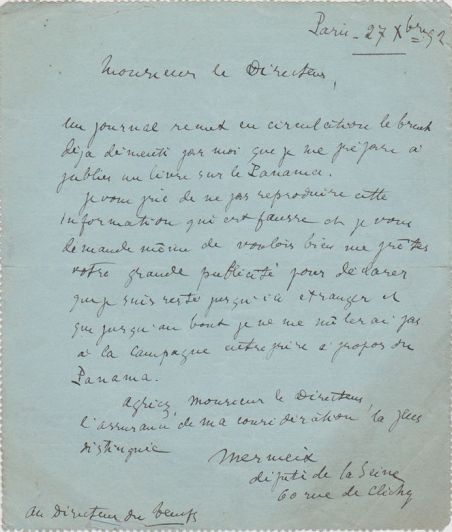 Paris - 27 Xbre 92
Monsieur le Directeur,
un journal remet en circulation le bruit
déja démenti par moi que je me prépare à
publier un livre sur le Panama.
Je vous prie de ne pas reproduire cette
information qui est fausse et je vous
demande même de vouloir bien me prêter
votre grande publicité pour déclarer
que je suis resté jusqu'ici étranger et
que jusqu'au bout je ne me mêlerai pas
à la campagne entreprise à propos du
Panama.
Agréez, Monsieur le Directeur,
l'assurance de ma considération la plus
distinguée
Mermeix
député de la Seine
60 rue de Clichy
au Directeur du Temps